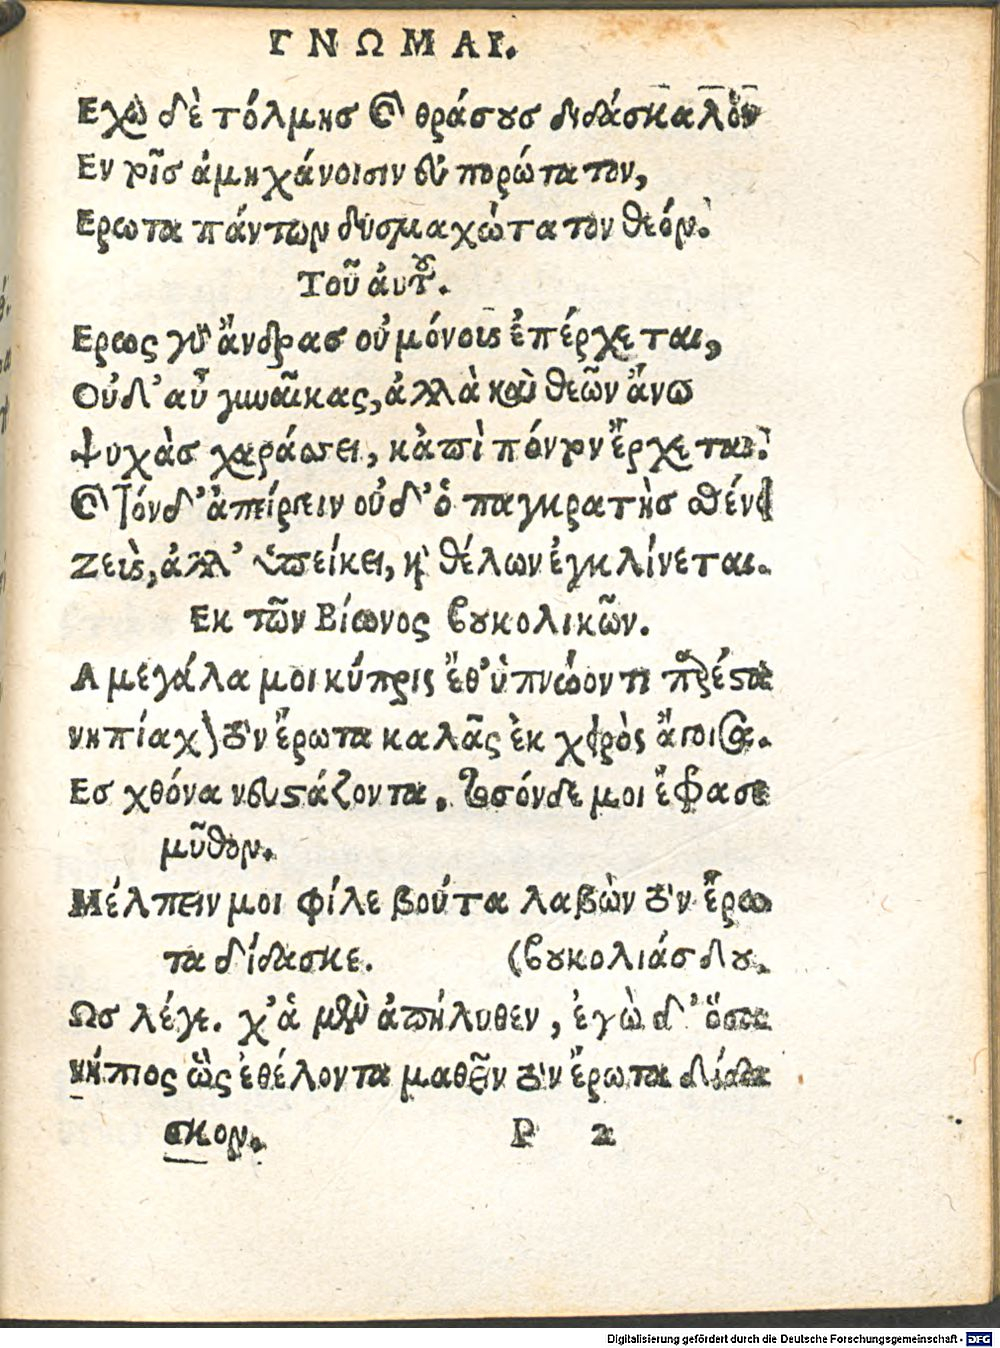 ΓΝΩΜΑΙ.
Εχω δὲ τόλμησ καὶ θράσουσ διδάσκαλον
Εν τοῖσ ἀμηχάνοισιν εὐπορώτατον,
Ερωτα πάντων δυσμαχώτατον θεόν.
Τοῦ ἀυτοῦ.
Ερως γὰρ ἄνδρασ οὐ μόνοις ἐπέρχεται,
Οὐδ' αὖ γυναῖκας, ἀλλὰ καὶ θεῶν ἄνω
ψυχὰσ χαράσσει, κἀπὶ πόντον ἔρχεται.
καὶ τόνδ' ἀπείργειν οὐδ' ὁ παγκρατὴσ σθένει
Ζεὺς, ἀλλ' ὑπείκει, καὶ θέλων ἐγκλίνεται.
Εκ τῶν Βίωνος βουκολικῶν.
Α μεγάλα μοι κύπρις ἔθ' ὑπνώοντι παρέστα
νηπίαχον τὸν ἔρωτα καλᾶς ἐκ χειρὸς ἄγοισα.
Εσ χθόνα νευστάζοντα, τόσόνδε μοι ἔφασε
μῦθον.
Μέλπειν μοι φίλε βούτα λαβὼν τὸν ἔρω
τα δίδασκε. (βουκολιάσδου.
Ωσ λέγε. χ' ἁ μὲν ἀπήλυθεν, ἐγὼ δ' ὅσα
νήπιος ὣς ἐθέλοντα μαθεῖν τὸν ἔρωτα δίδα
σκον. P 2
Digitalisierung gefördert durch die Deutsche Forschungsgemeinschaft - DFG